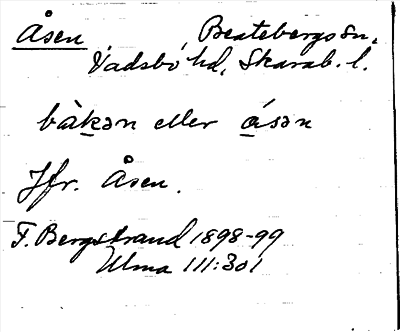 Åsen Beatebergs sn.
Vadsbo hd, Skarab. l.
bàkən eller ásən
Jfr. Åsen.
F. Bergstrand 1898-99
Ulma 111:301